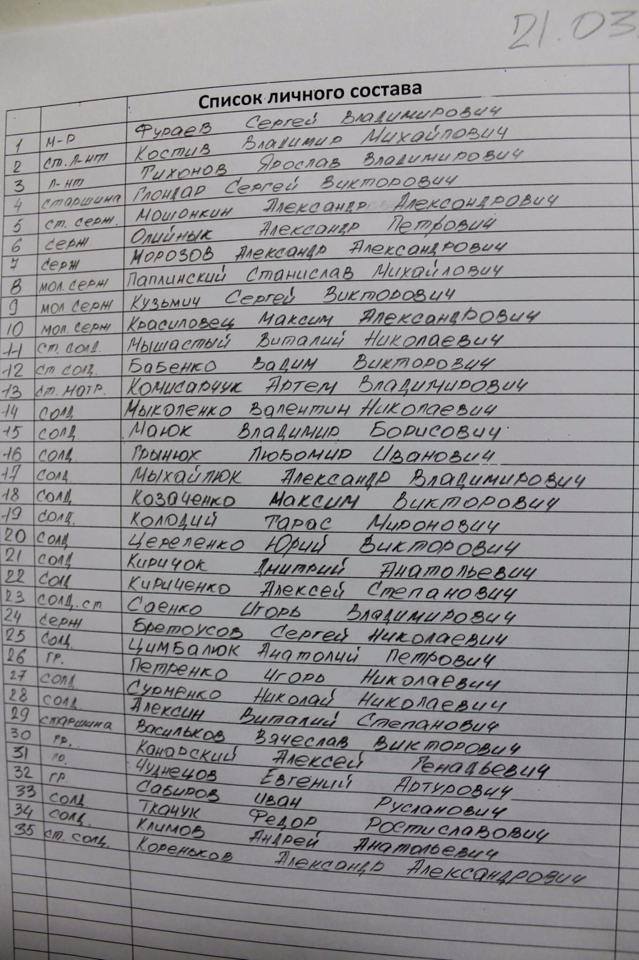 21.03
Список личного состава
1 м-р Фураев Сергей Владимирович
2 ст. л-нт Костив Владимир Михайлович
3 л-нт Тихонов Ярослав Владимирович
4 старшина Глондар Сергей Викторович
5 ст. серж. Мошонкин Александр Александрович
6 серж Олийнык Александр Петрович
7 серж Морозов Александр Александрович
8 мол. серж Паплинский Станислав Михайлович
9 мол серж Кузьмич Сергей Викторович
10 мол. серж Красиловец Максим Александрович
11 ст. солд. Мышастый Виталий Николаевич
12 ст солд. Бабенко Вадим Викторович
13 ст. мотр. Комисарчук Артем Владимирович
14 солд Мыколенко Валентин Николаевич
15 солд Маюк Владимир Борисович
16 солд Грынюх Любомир Иванович
17 солд Мыхайлюк Александр Владимирович
18 солд Козаченко Максим Викторович
19 солд. Колодий Тарас Миронович
20 солд Цереленко Юрий Викторович
21 солд Киричок Дмитрий Анатольевич
22 солд Кириченко Алексей Степанович
23 солд. ст Саенко Игорь Владимирович
24 серж Бретоусов Сергей Николаевич
25 солд. Цимбалюк Анатолий Петрович
26 гр. Петренко Игорь Николаевич
27 солд Сурменко Николай Николаевич
28 солд Алексин Виталий Степанович
29 старшина Васильков Вячеслав Викторович
30 гр. Канорский Алексей Генадьевич
31 Чуднецов Евгений Артурович
32 гр. Сабиров Иван Русланович
33 солд Ткачук Федор Ростиславович
34 солд. Климов Андрей Анатольевич
35 ст. солд. Кореньков Александр Александрович